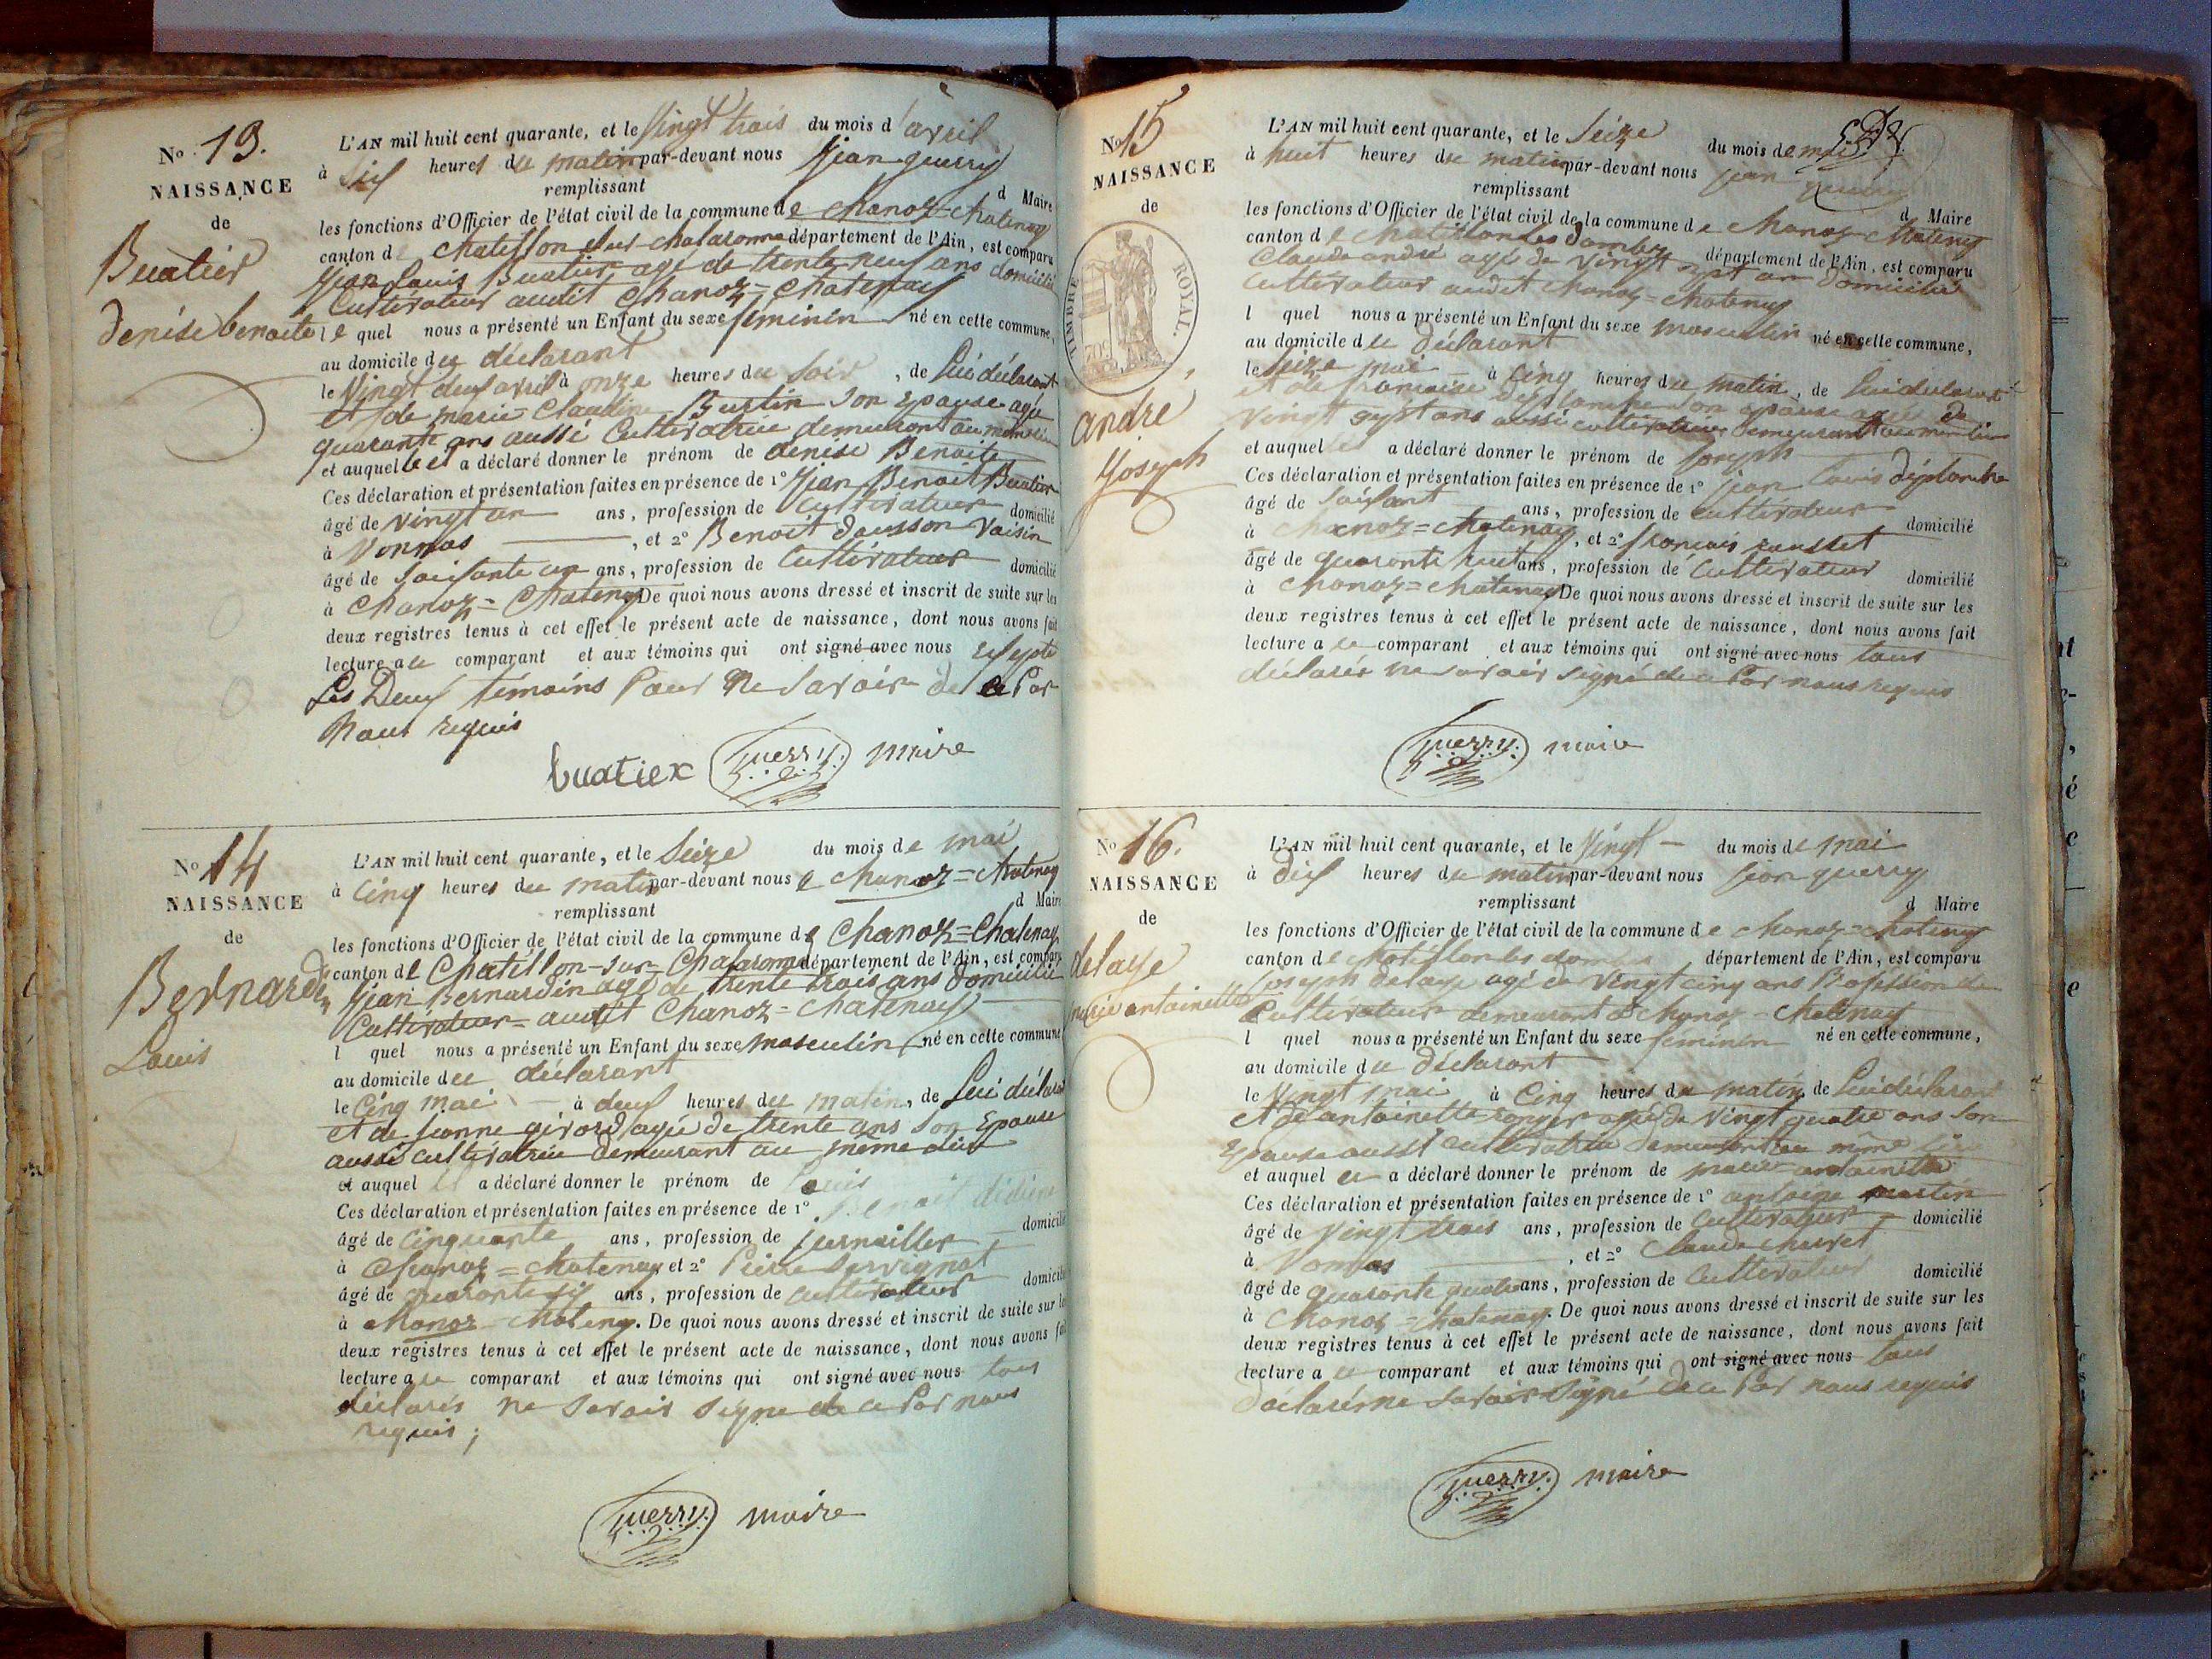 No 13.
NAISSANCE
de
Buatier
denise benoite
L'AN mil huit cent quarante, et le Vingt trois du mois d'avril
à Six heures du matin par-devant nous Jean guerry
remplissant d Maire
les fonctions d'Officier de l'état civil de la commune de Chanoz=Chatenay
canton de Chatillon sur chalaronne département de l'Ain, est comparu
Jean Louis Buatier agé de trente neuf ans domicilié
Cultivateur audit Chanoz=Chatenay
le quel nous a présenté un Enfant du sexe feminin né en cette commune,
au domicile du déclarant
le Vingt deux avril à onze heures du Soir, de Lui déclarant
et de marie=Claudine Burtin Son epouse agée
quarante ans aussi Cultivatrice demeurant au même lieu
et auquel le et a déclaré donner le prénom de denise Benoite
Ces déclaration et présentation faites en présence de 1° Jean Benoit Buatier
âgé de Vingt un ans, profession de Cultivateur domicilié
à Vonnas, et 2° Benoit Voisin
âgé de Soixante un ans, profession de Cultivateur domicilié
à Chanoz=Chatenay De quoi nous avons dressé et inscrit de suite sur les
deux registres tenus à cet effet le présent acte de naissance, dont nous avons fait
lecture au comparant et aux témoins qui ont signé avec nous Exepté
Les Deux témoins Pour Ne Savoir de ce Par
Nous requis
buatier Guerry maire
No 14
NAISSANCE
de
Bernardin
Louis
L'AN mil huit cent quarante, et le Seize du mois de mai
à Cinq heures du matin par-devant nous e chanoz=chatenay
remplissant d Maire
les fonctions d'Officier de l'état civil de la commune de Chanoz=Chatenay
canton de Chatillon-sur-Chalaronne département de l'Ain, est comparu
Jean Bernardin agé de trente trois ans domicilié
Cultivateur audit Chanoz=Chatenay
l quel nous a présenté un Enfant du sexe masculin né en cette commune
au domicile du déclarant
le Cinq mai à deux heures du matin, de Lui déclarant
et de Jeanne girard agée de trente ans Son Epouse
aussi cultivatrice demeurant au même lieu
et auquel il a déclaré donner le prénom de Louis
Ces déclaration et présentation faites en présence de 1° Benoit
âgé de Cinquante ans, profession de journallier domicilié
à Chanoz=Chatenay et 2° Pierre
âgé de quarante six ans, profession de Cultivateur domicilié
à Chanoz-Chatenay. De quoi nous avons dressé et inscrit de suite sur les
deux registres tenus à cet effet le présent acte de naissance, dont nous avons fait
lecture au comparant et aux témoins qui ont signé avec nous tous
déclarés ne Savoir Signé de ce Par nous
requis;
Guerry maire
No 15
NAISSANCE
de
TIMBRE ROYAL.
andré
Joseph
L'AN mil huit cent quarante, et le Seize du mois de mai
à huit heures du matin par-devant nous Jean guerry
remplissant d Maire
les fonctions d'Officier de l'état civil de la commune de Chanoz-Chatenay
canton de Chatillon les Dombes département de l'Ain, est comparu
Claude andré agé de Vingt sept an domicilié
cultivateur audit Chanoz=Chatenay
l quel nous a présenté un Enfant du sexe masculin né en cette commune,
au domicile du déclarant
le Seize mai à Cinq heures du matin, de Lui déclarant
et de françoise Son epouse agée de
Vingt sept ans aussi cultivatrice demeurant au même lieu
et auquel a déclaré donner le prénom de Joseph
Ces déclaration et présentation faites en présence de 1° Jean Louis déplanche
âgé de Soixant ans, profession de cultivateur domicilié
à Chanoz=Chatenay, et 2° françois rousset
âgé de quarante huit ans, profession de Cultivateur domicilié
à Chanoz=Chatenay De quoi nous avons dressé et inscrit de suite sur les
deux registres tenus à cet effet le présent acte de naissance, dont nous avons fait
lecture a ce comparant et aux témoins qui ont signé avec nous tous
déclarés ne Savoir signé de ce Par nous requis
Guerry maire
No 16.
NAISSANCE
de
delaye
marie antoinette
L'AN mil huit cent quarante, et le Vingt du mois de mai
à dix heures du matin par-devant nous Jean guerry
remplissant d Maire
les fonctions d'Officier de l'état civil de la commune de Chanoz=Chatenay
canton de Chatillon les dombes département de l'Ain, est comparu
Joseph delaye agé de Vingt cinq ans Profession de
Cultivateur demeurant a Chanoz-Chatenay
l quel nous a présenté un Enfant du sexe féminin né en cette commune,
au domicile du déclarant
le Vingt mai à Cinq heures du matin, de Lui déclarant
et de antoinette ronger agée de Vingt quatre ans Son
Epouse aussi cultivatrice demeurant au même lieu
et auquel a déclaré donner le prénom de marie antoinette
Ces déclaration et présentation faites en présence de 1° antoine martin
âgé de Vingt trois ans, profession de Cultivateur domicilié
à Vonnas, et 2° Claude
âgé de quarante quatre ans, profession de Cultivateur domicilié
à Chanoz=Chatenay. De quoi nous avons dressé et inscrit de suite sur les
deux registres tenus à cet effet le présent acte de naissance, dont nous avons fait
lecture a ce comparant et aux témoins qui ont signé avec nous tous
déclaré ne Savoir Signé de ce Par nous requis
Guerry maire